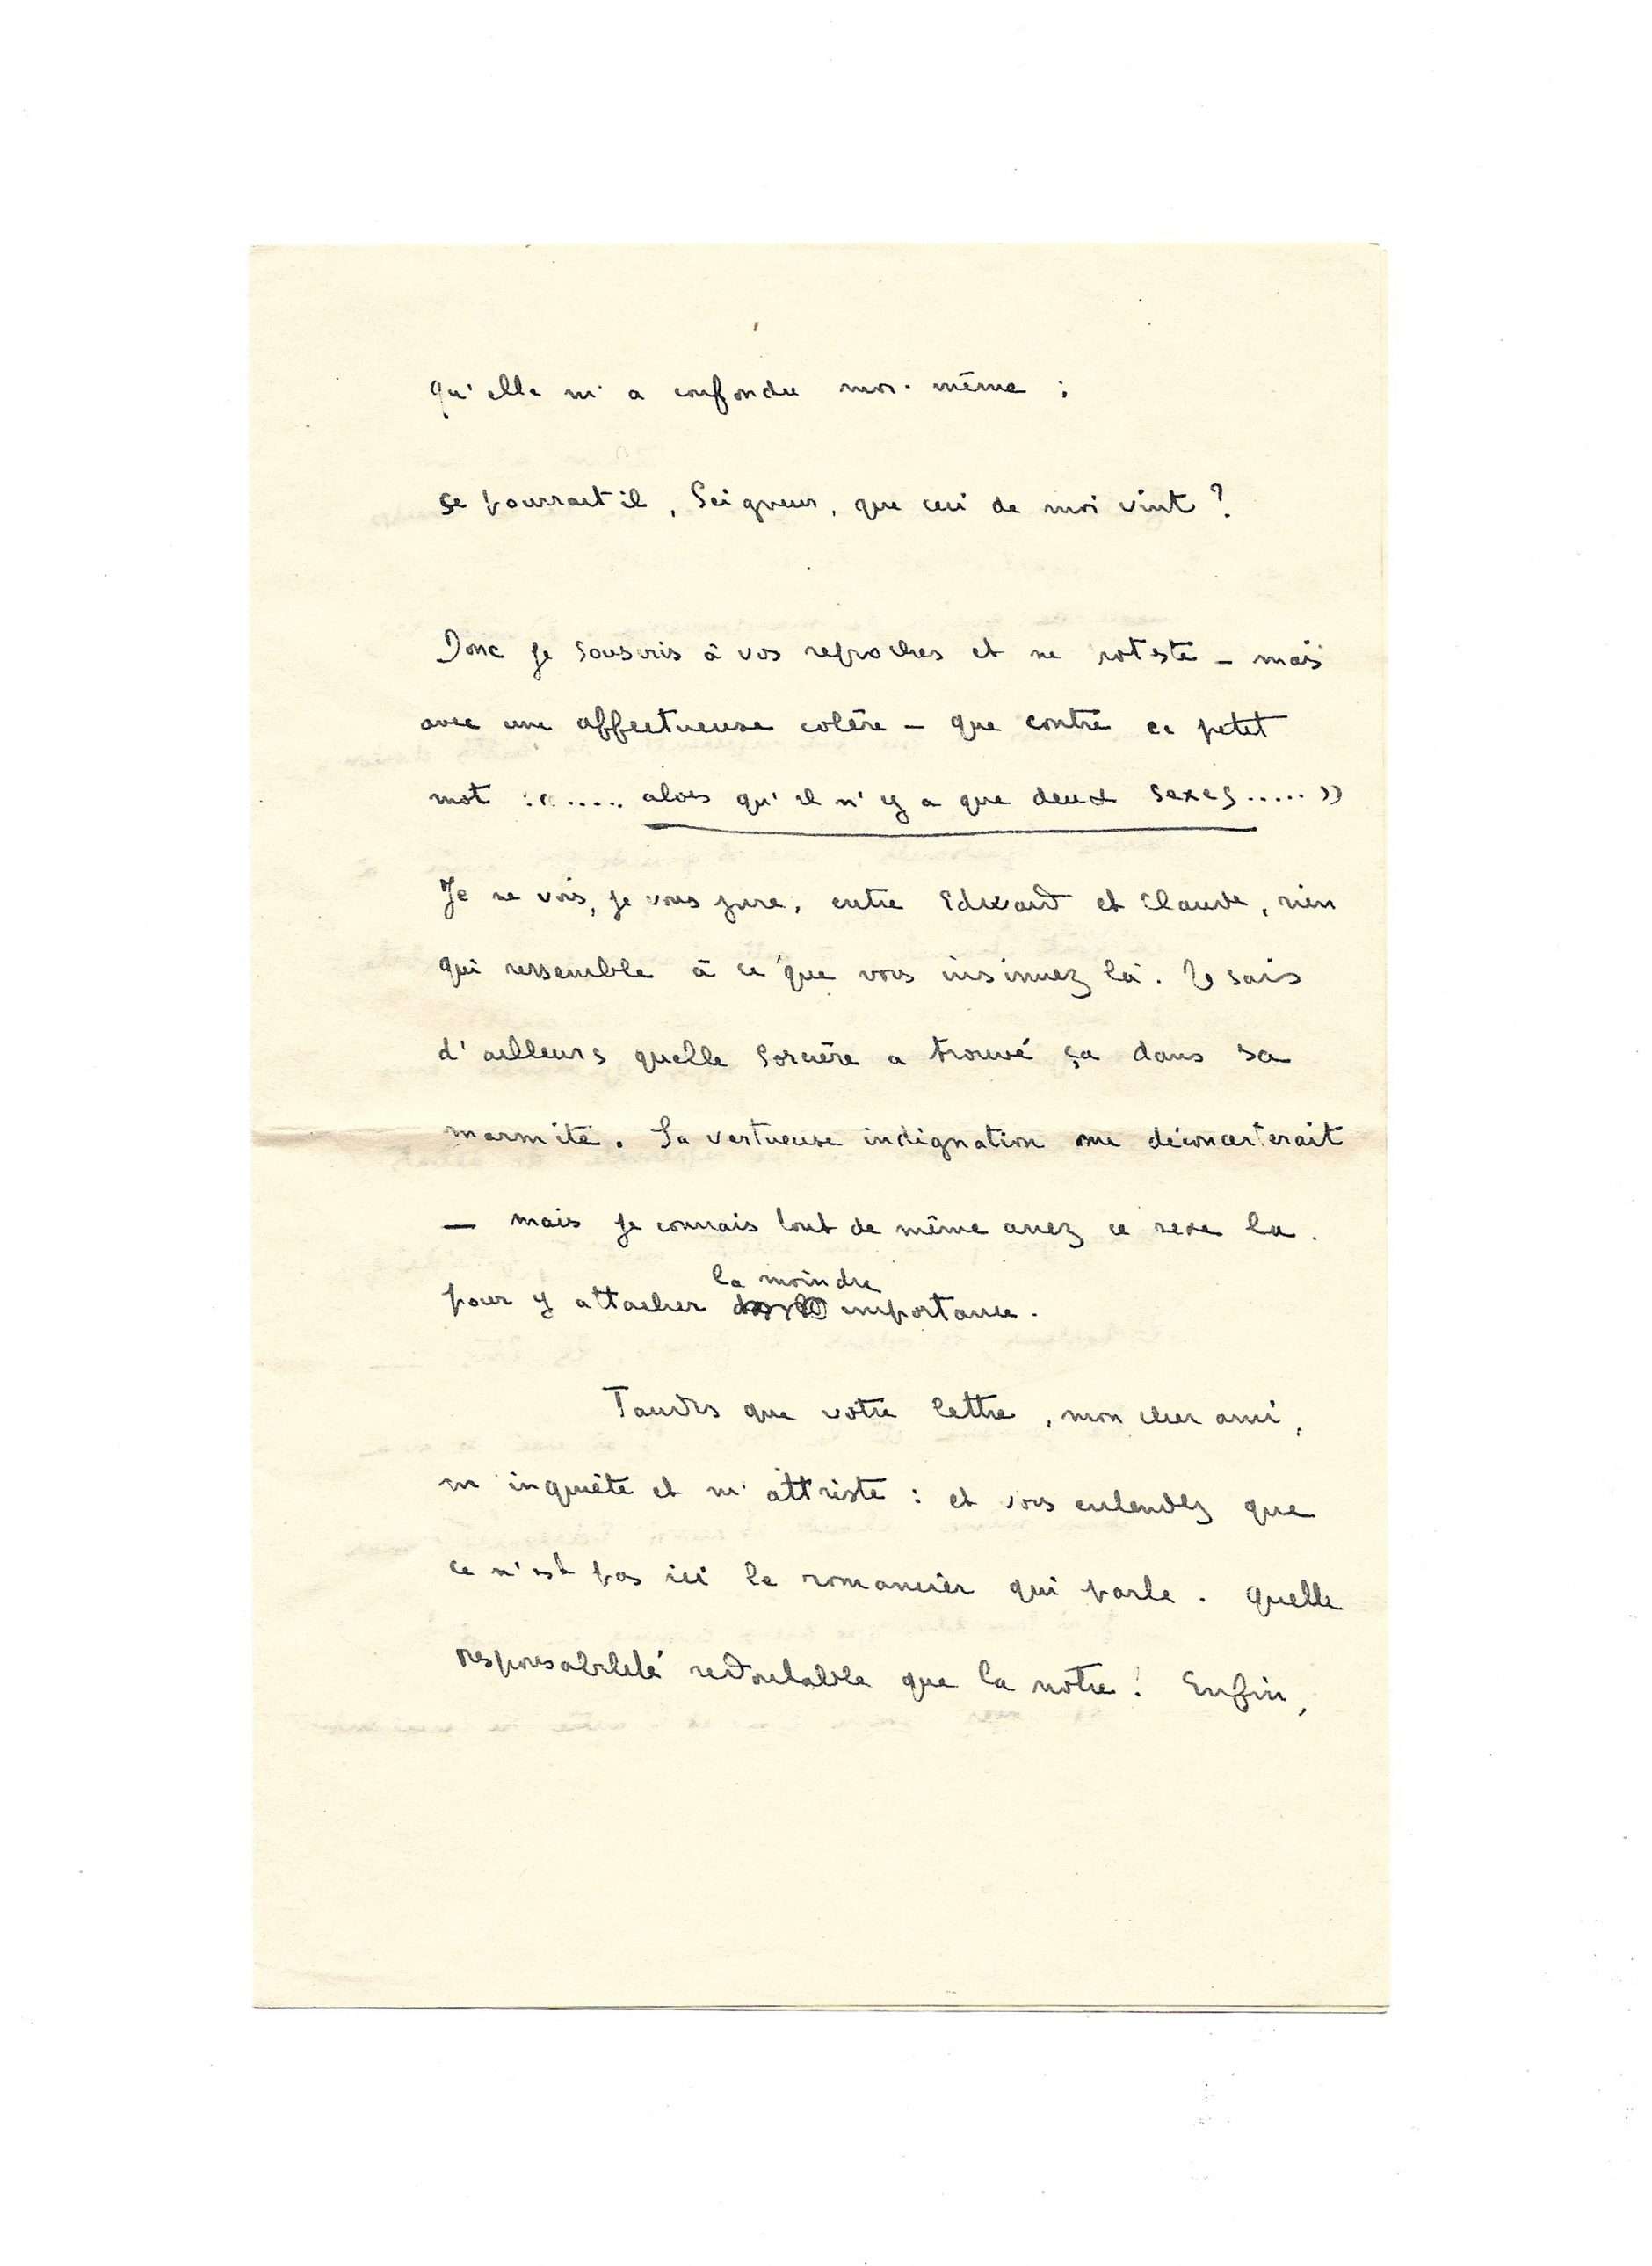 qu'elle m'a confondu moi-même :
se pourrait il, Seigneur, que ceci de moi vint ?
Donc je souscris à vos reproches et ne proteste – mais
avec une affectueuse colère – que contre ce petit
mot : «..... alors qu'il n'y a que deux sexes..... »
Je ne vois, je vous jure, entre Edward et Claude, rien
qui ressemble à ce que vous insinuez là. Je sais
d'ailleurs quelle sorcière a trouvé ça dans sa
marmite. Sa vertueuse indignation me déconcerterait
— mais je connais tout de même assez ce sexe la.
pour y attacher la moindre importance.
Tandis que votre lettre, mon cher ami,
m'inquiète et m'attriste : et vous entendez que
ce n'est pas ici le romancier qui parle. Quelle
responsabilité redoutable que la notre ! Enfin,